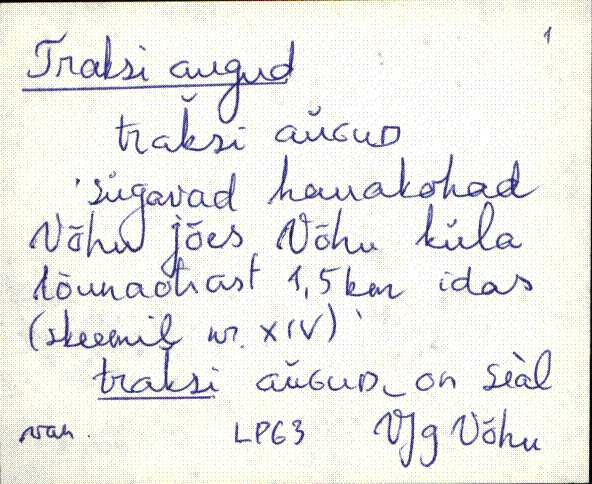 1
Traksi augud
trak̆si aŭGUD
'sügavad hauakohad
Võhu jões Võhu küla
lõunaotsast 1,5 km idas
(skeemil nr. XIV)
trak̆si aŭGUD on sèal
van. LPG3 VJg Võhu